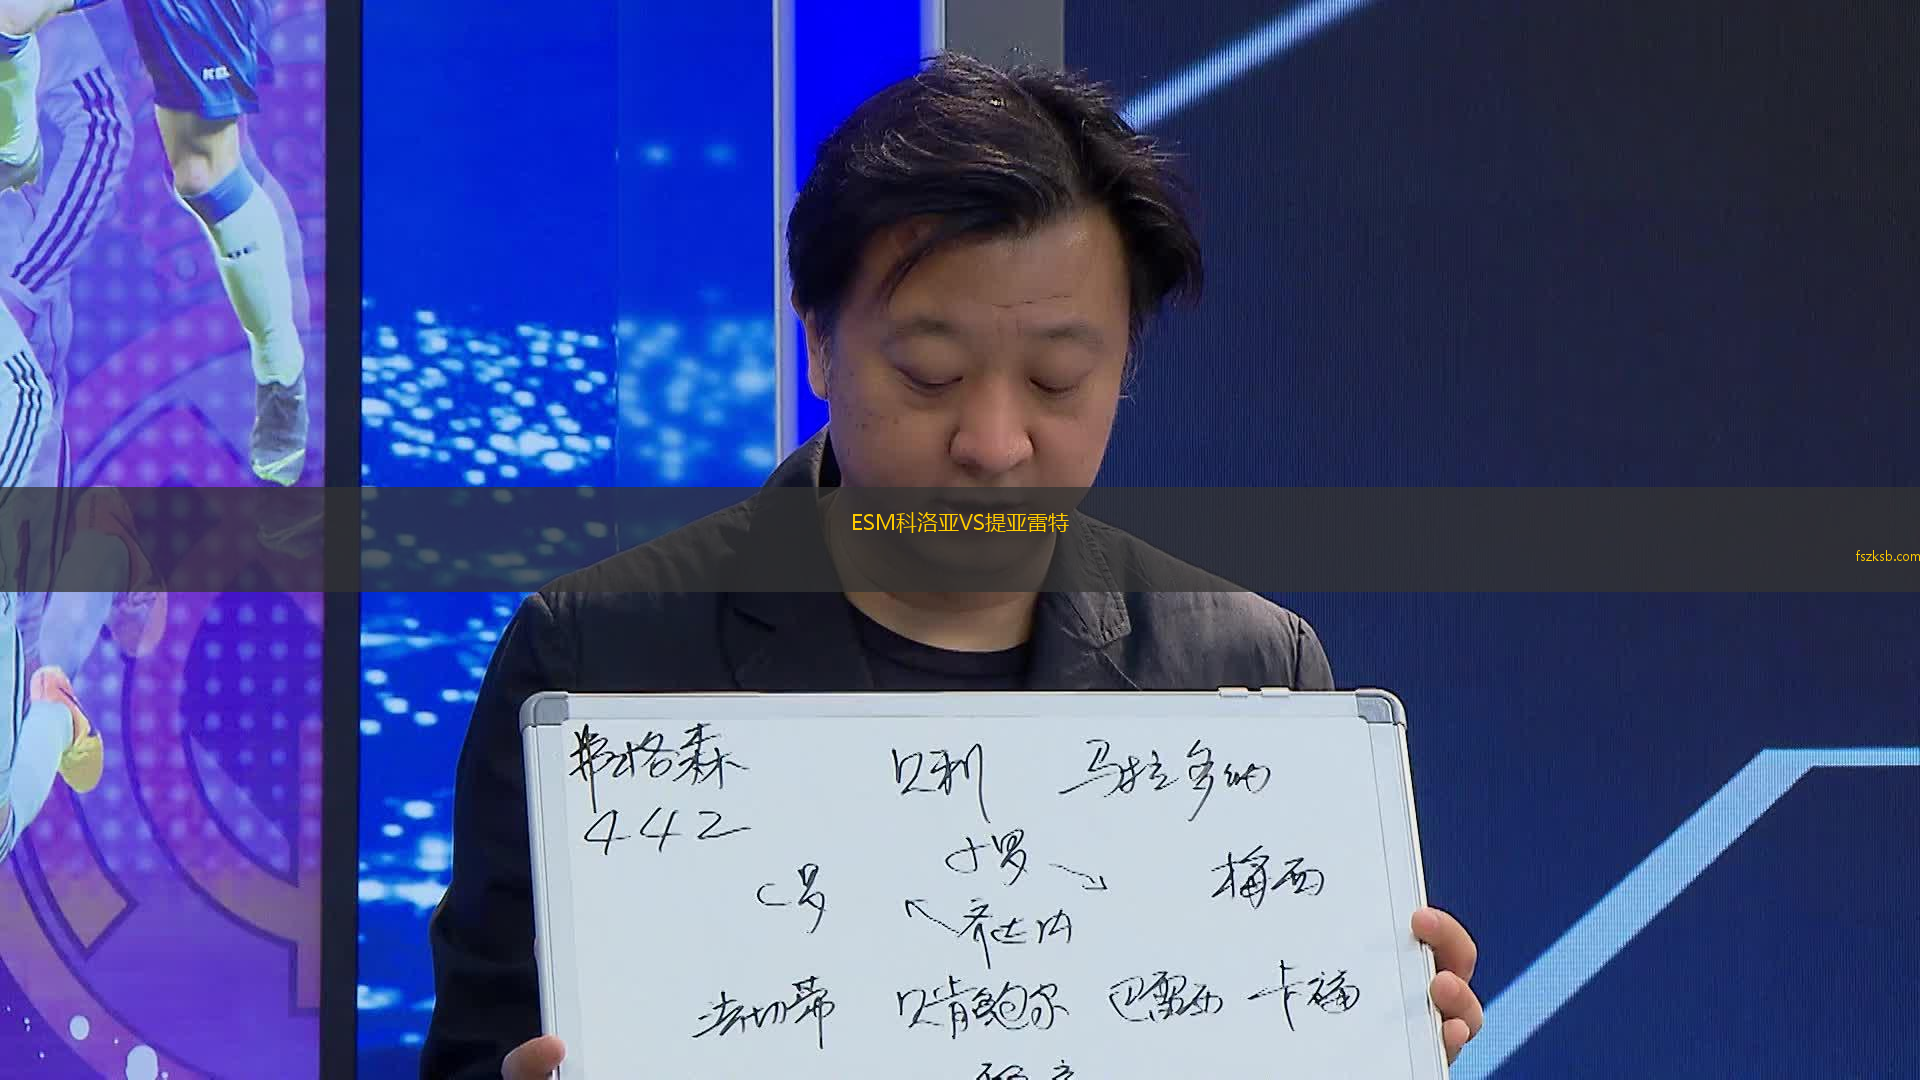 ESM科洛亚VS提亚雷特
fszksb.com
弗格森 贝利 马拉多纳
442
小罗
C罗 梅西
齐达内
法切蒂 贝肯鲍尔 巴雷西 卡福